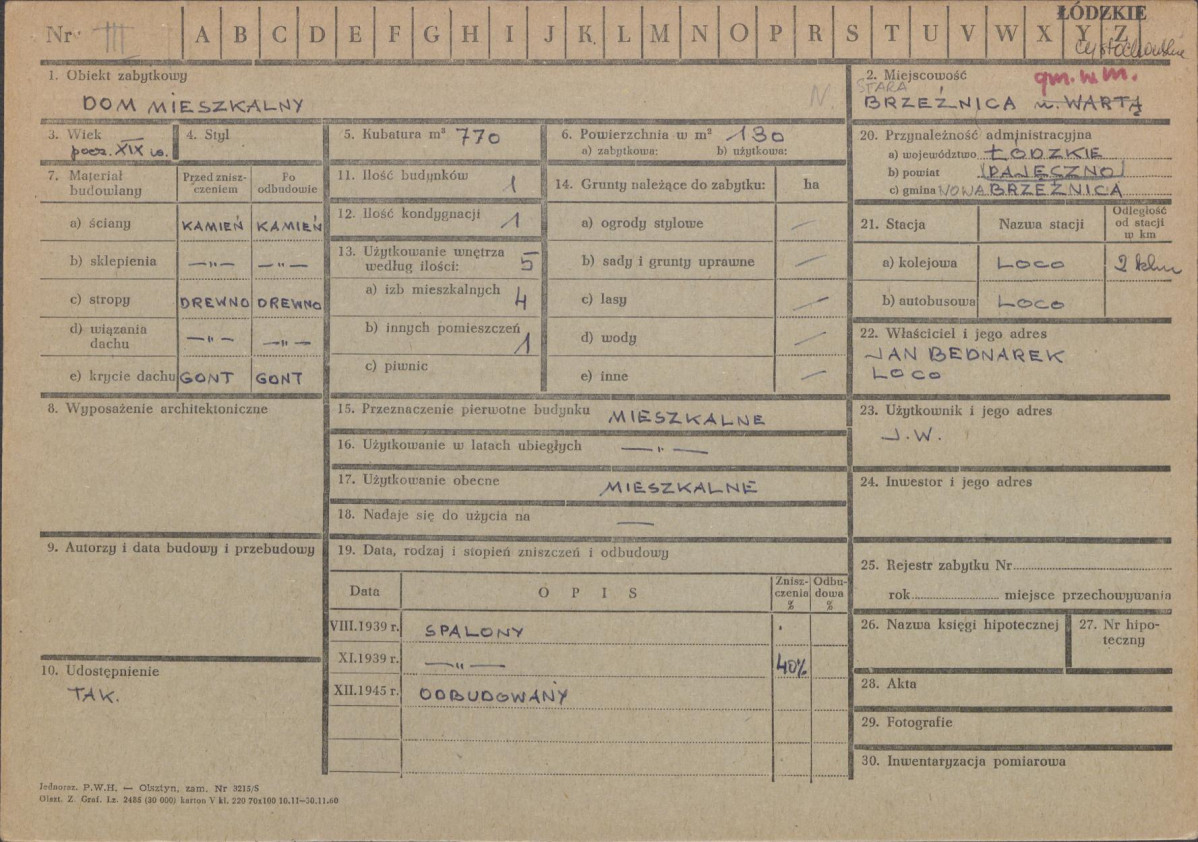 ŁÓDZKIE
Nr III A B C D E F G H I J K L M N O P R S T U V W X Y Z
1. Obiekt zabytkowy
DOM MIESZKALNY
N.
2. Miejscowość
gm. w m.
STARA
BRZEŹNICA n. WARTĄ
3. Wiek
pocz. XIX w.
4. Styl
5. Kubatura m³ 770
6. Powierzchnia w m² 130
a) zabytkowa: b) użytkowa:
7. Materiał budowlany
Przed zniszczeniem
Po odbudowie
a) ściany KAMIEŃ KAMIEŃ
b) sklepienia —„— —„—
c) stropy DREWNO DREWNO
d) wiązania dachu —„— —„—
e) krycie dachu GONT GONT
8. Wyposażenie architektoniczne
9. Autorzy i data budowy i przebudowy
10. Udostępnienie
TAK.
11. Ilość budynków 1
12. Ilość kondygnacji 1
13. Użytkowanie wnętrza
według ilości: 5
a) izb mieszkalnych 4
b) innych pomieszczeń 1
c) piwnic
14. Grunty należące do zabytku: ha
a) ogrody stylowe —
b) sady i grunty uprawne —
c) lasy —
d) wody —
e) inne —
15. Przeznaczenie pierwotne budynku MIESZKALNE
16. Użytkowanie w latach ubiegłych —„—
17. Użytkowanie obecne MIESZKALNE
18. Nadaje się do użycia na —
19. Data, rodzaj i stopień zniszczeń i odbudowy
Data O P I S Zniszczenia % Odbudowa %
VIII.1939 r. SPALONY
XI.1939 r. —„— 40%
XII.1945 r. ODBUDOWANY
20. Przynależność administracyjna
a) województwo ŁÓDZKIE
b) powiat PAJĘCZNO
c) gmina NOWA BRZEŹNICA
21. Stacja Nazwa stacji Odległość od stacji w km
a) kolejowa LOCO 2 klm
b) autobusowa LOCO
22. Właściciel i jego adres
JAN BEDNAREK
LOCO
23. Użytkownik i jego adres
J.W.
24. Inwestor i jego adres
25. Rejestr zabytku Nr
rok miejsce przechowywania
26. Nazwa księgi hipotecznej
27. Nr hipoteczny
28. Akta
29. Fotografie
30. Inwentaryzacja pomiarowa
Jednoraz. P.W.H. — Olsztyn, zam. Nr 3215/S
Olszt. Z. Graf. Lz. 2486 (30 000) karton V kl. 220 70x100 10.11—30.11.60